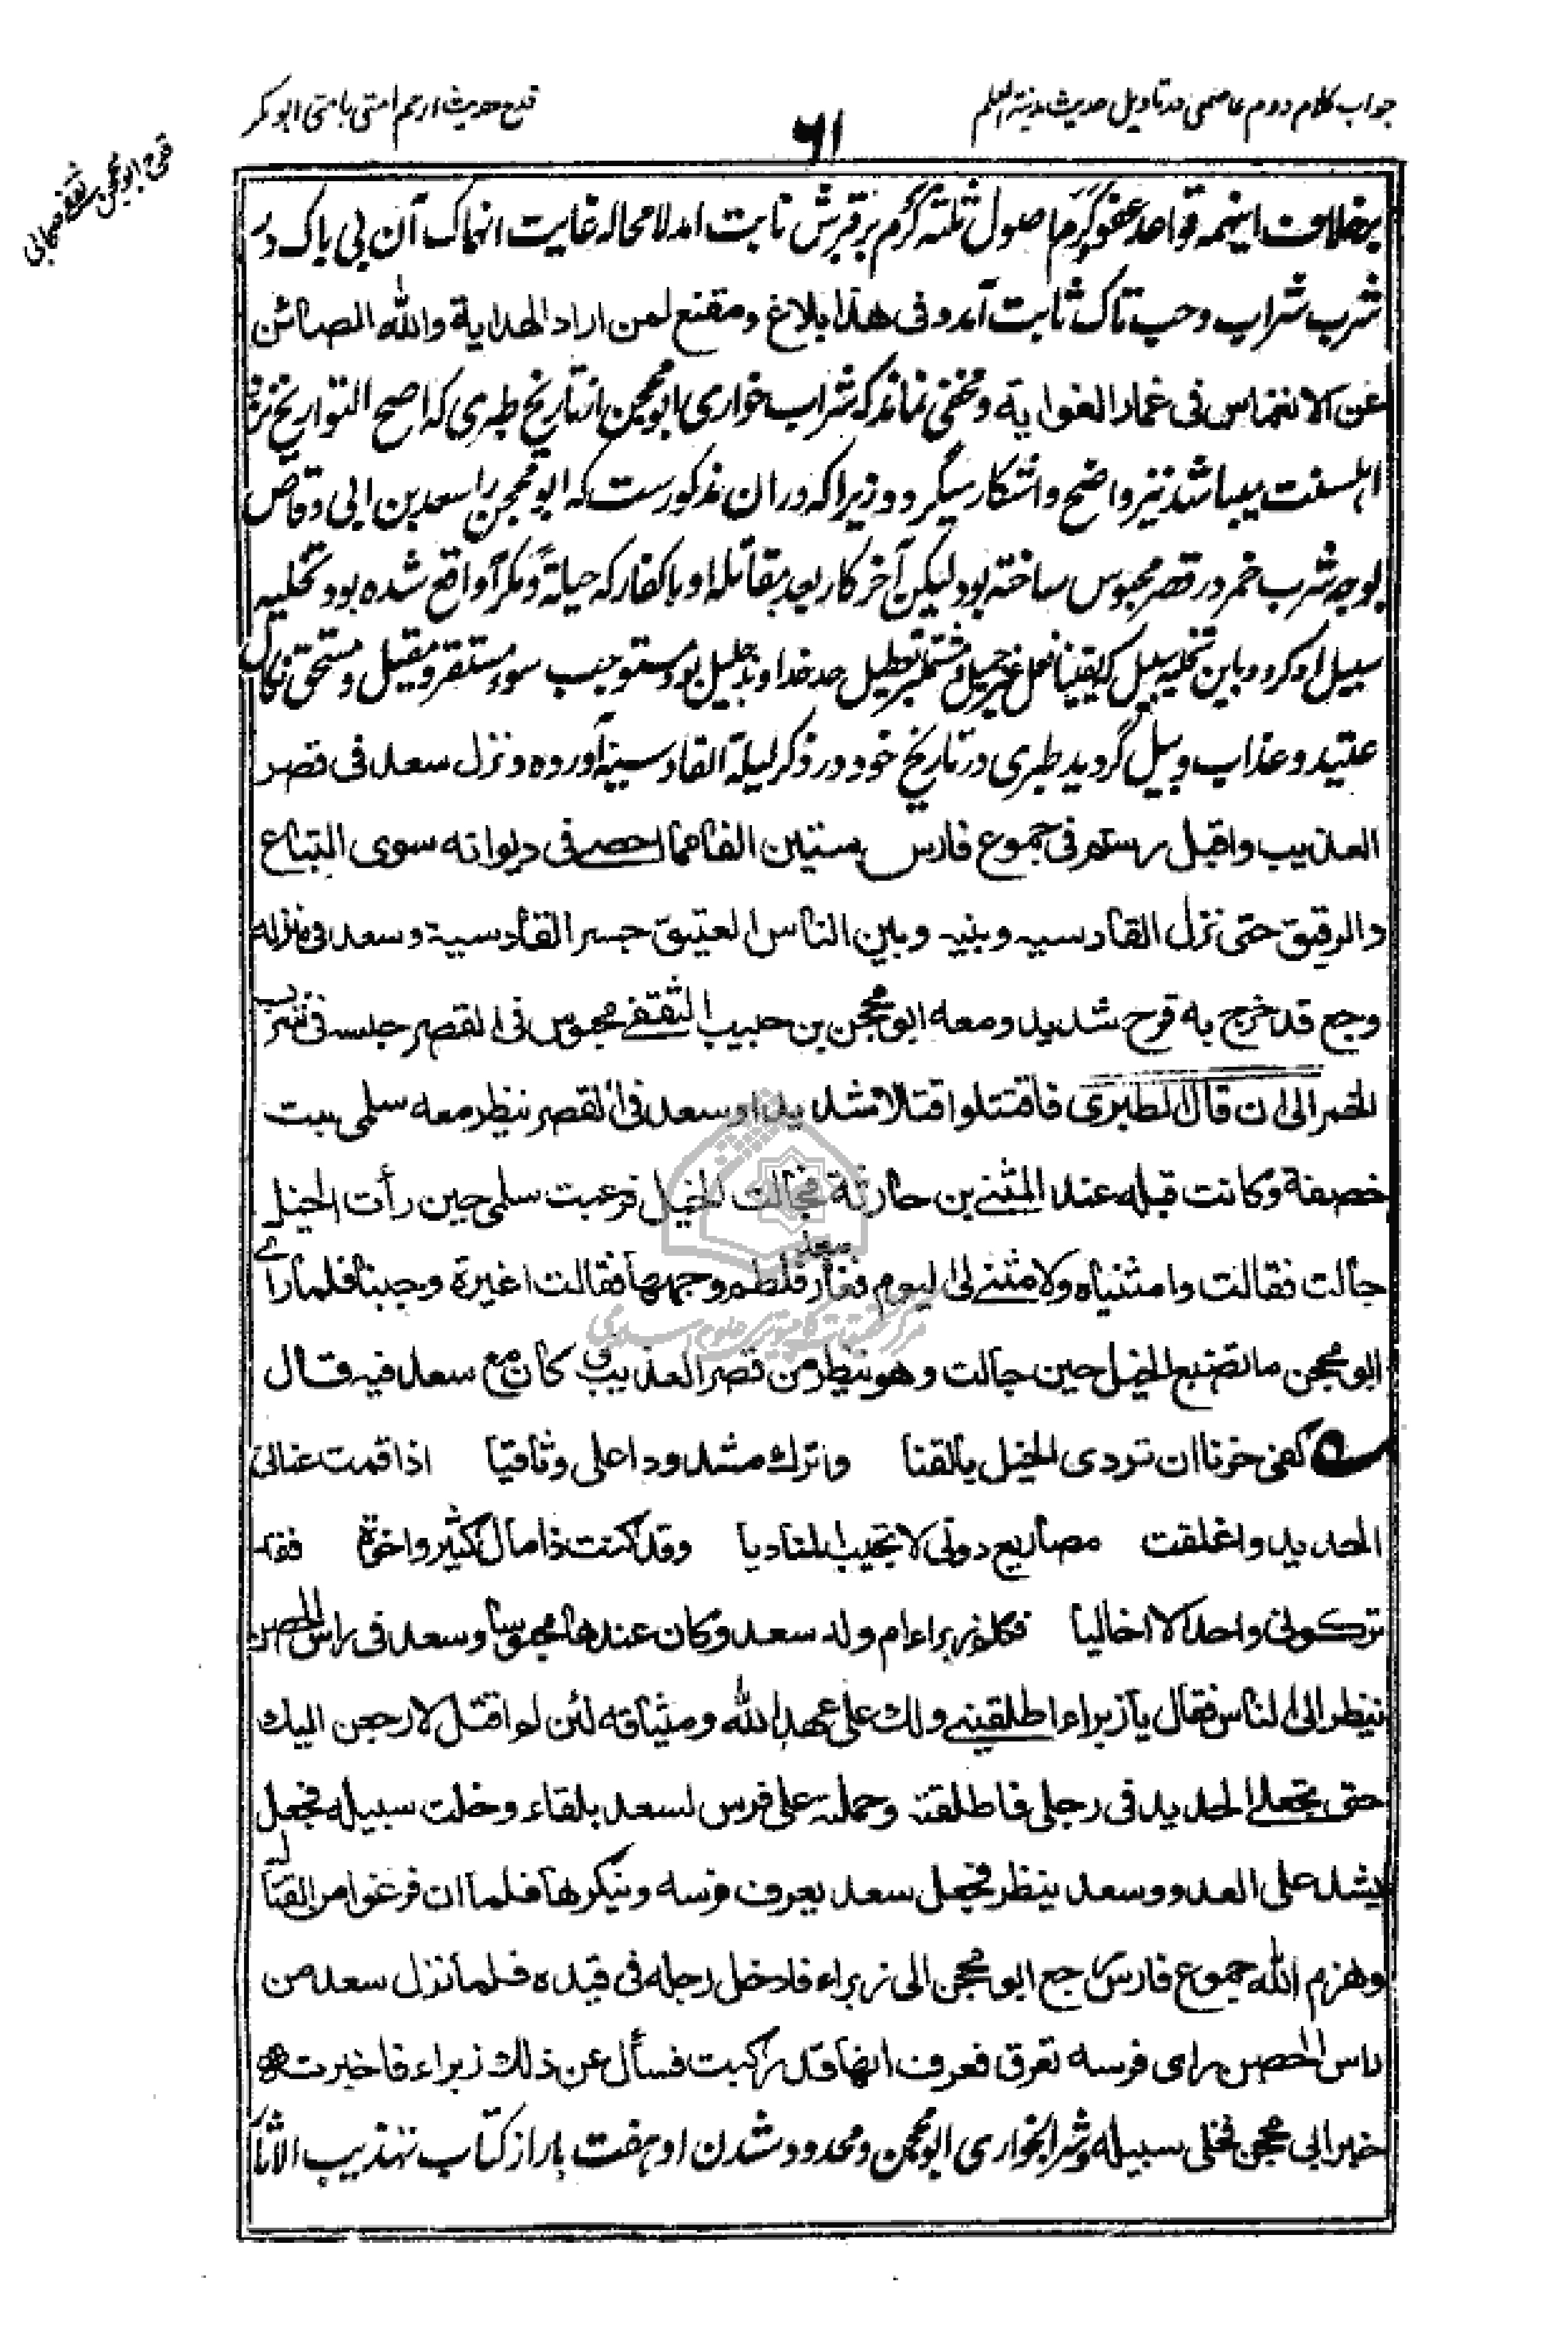 جواب کلام دوم عاصمی در تاویل حدیث مدینة العلم
قدح حدیث ارحم امتی بامتی ابوبکر
۶۱
بخلاف اینهمه قواعد عفو کرم اصول ثلثه کرم بر قبرش ثابت آمد لا محاله غایت انهماک آن بی باک در
شرب شراب و حب تاک ثابت آمد و فی هذا بلاغ و مقنع لمن اراد الهدایة والله الصائن
عن الانغماس فی غمار الغوایة و مخفی نماند که شراب خواری ابو محجن از تاریخ طبری که اصح التواریخ نزد
اهلسنت میباشد نیز واضح و اشکار میگردد زیرا که دران مذکورست که ابو محجن را سعد بن ابی وقاص
بوجه شرب خمر در قصر محبوس ساخته بود لیکن آخر کار بعد مقاتله او با کفار که حیلةً و مکراً واقع شده بود تخلیه
سبیل او کرد و باین تخلیه سبیل که یقینا فعل غیر جمیل و مشتمل بر تعطیل حد خداوند جلیل بود مستوجب سوء مستقر و مقیل و مستحق نکال
عتید و عذاب وبیل گردید طبری در تاریخ خود در ذکر لیلة القادسیة آورده و نزل سعد فی قصر
العذیب و اقبل رستم فی جموع فارس ستین الفا مما احصی فی دیوانه سوی التباع
والرقیق حتی نزل القادسیه و بنیه و بین الناس العتیق جسر القادسیة و سعد فی منزله
وجع قد خرج به قرح شدید و معه ابو محجن بن حبیب الثقفی محبوس فی القصر حبسه فی شرب
الخمر الی ان قال الطبری فاقتتلوا قتالا شدیدا و سعد فی القصر ینظر معه سلمی بنت
خصفة و کانت قبله عند المثنی بن حارثة فجالت الخیل فرعبت سلمی حین رأت الخیل
جالت فقالت وا مثنیاه ولا مثنی لی الیوم فغار سعد فلطم وجهها فقالت اغیرة و جبنا فلما رای
ابو محجن ما تصنع الخیل حین جالت و هو ینظر من قصر العذیب و کان مع سعد فیه قال
کفی حزنا ان تردی الخیل بالقنا واترك مشدودا علی وثاقیا اذا قمت عنانی
الحدید و اغلقت مصاریع دونی لا تجیب المنادیا وقد کنت ذا مال کثیر واخوة فقد
ترکونی واحدا لا اخالیا فکلم زبراء ام ولد سعد و کان عندها محبوسا و سعد فی راس الحصن
ینظر الی الناس فقال یا زبراء اطلقینی ولك علی عهد الله و میثاقه لئن لم اقتل لارجعن الیك
حتی تجعلی الحدید فی رجلی فاطلقته وحملته علی فرس لسعد بلقاء وخلت سبیله فجعل
یشد علی العدو و سعد ینظر فجعل سعد یعرف فرسه و ینکرها فلما ان فرغوا من القتال
وهزم الله جموع فارس رجع ابو محجن الی زبراء فادخل رجله فی قیده فلما نزل سعد من
راس الحصن رای فرسه تعرق فعرف انها قد رکبت فسأل عن ذلك زبراء فاخبرته
خبر ابی محجن فخلی سبیله و شرابخواری ابو محجن و محدود شدن او هفت بار از کتاب تهذیب الآثار